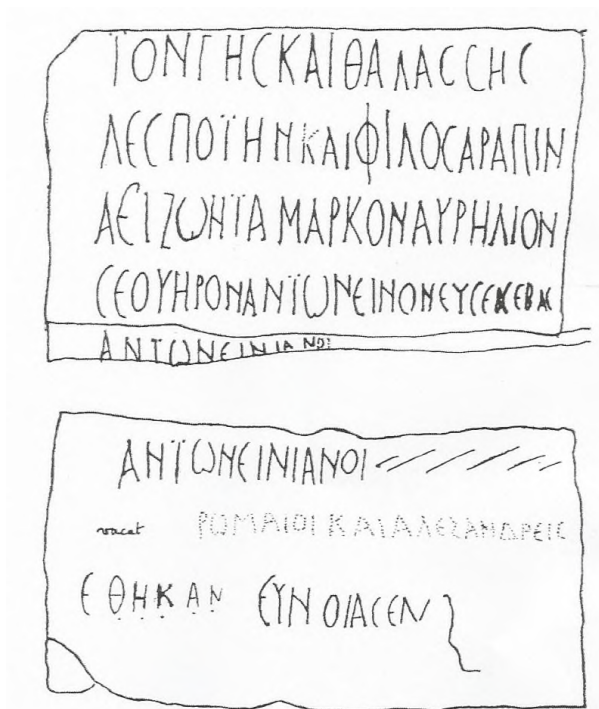 ΤΟΝΓΗϹΚΑΙΘΑΛΑϹϹΗϹ
ΔΕϹΠΟΤΗΝΚΑΙΦΙΛΟϹΑΡΑΠΙΝ
ΑΕΙΖΩΗΤΑΜΑΡΚΟΝΑΥΡΗΛΙΟΝ
ϹΕΟΥΗΡΟΝΑΝΤΩΝΕΙΝΟΝΕΥϹΕ
ΑΝΤΩΝΕΙΝΙΑΝΟΙ
ΑΝΤΩΝΕΙΝΙΑΝΟΙ
vacat ΡΩΜΑΙΟΙΚΑΙΑΛΕΞΑΝΔΡΕΙϹ
ΕΘΗΚΑΝ ΕΥΝΟΙΑϹΕΝ